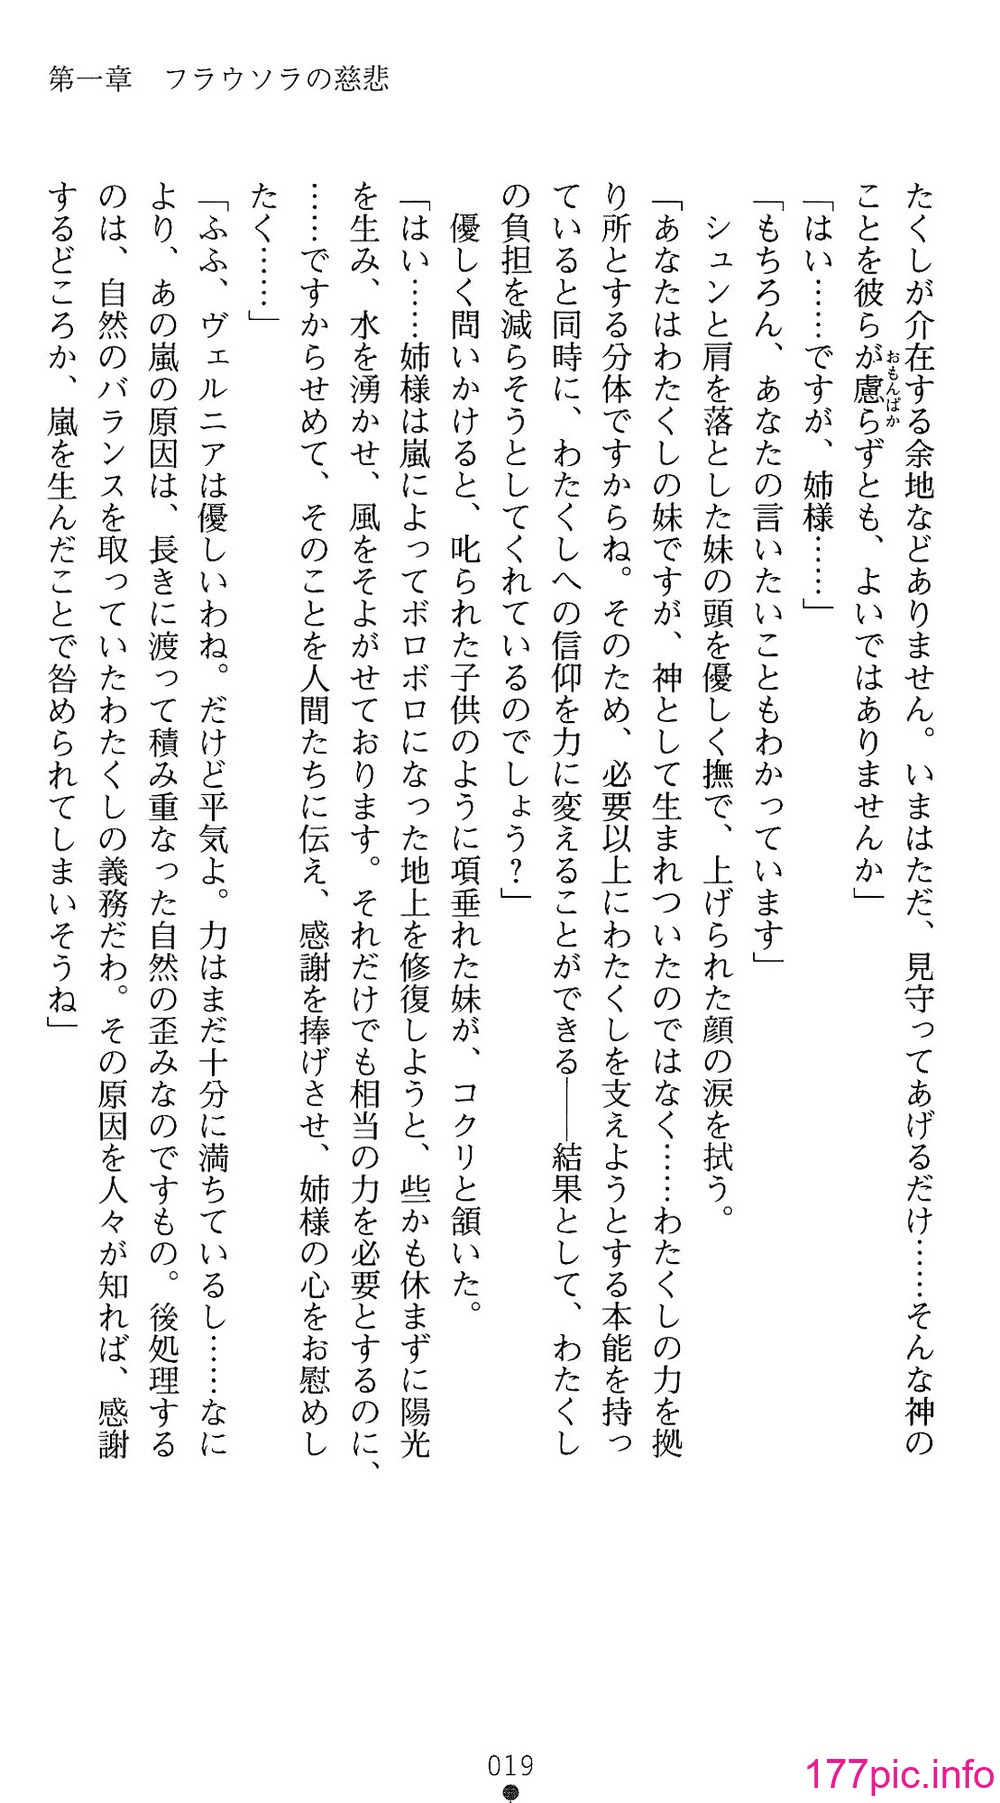 第一章　フラウソラの慈悲
たくしが介在する余地などありません。いまはただ、見守ってあげるだけ……そんな神の
ことを彼らが慮らずとも、よいではありませんか」
おもんばか
「はい……ですが、姉様……」
「もちろん、あなたの言いたいこともわかっています」
　シュンと肩を落とした妹の頭を優しく撫で、上げられた顔の涙を拭う。
「あなたはわたくしの妹ですが、神として生まれついたのではなく……わたくしの力を拠
り所とする分体ですからね。そのため、必要以上にわたくしを支えようとする本能を持っ
ていると同時に、わたくしへの信仰を力に変えることができる――結果として、わたくし
の負担を減らそうとしてくれているのでしょう？」
　優しく問いかけると、叱られた子供のように項垂れた妹が、コクリと頷いた。
「はい……姉様は嵐によってボロボロになった地上を修復しようと、些かも休まずに陽光
を生み、水を湧かせ、風をそよがせております。それだけでも相当の力を必要とするのに、
……ですからせめて、そのことを人間たちに伝え、感謝を捧げさせ、姉様の心をお慰めし
たく……」
「ふふ、ヴェルニアは優しいわね。だけど平気よ。力はまだ十分に満ちているし……なに
より、あの嵐の原因は、長きに渡って積み重なった自然の歪みなのですもの。後処理する
のは、自然のバランスを取っていたわたくしの義務だわ。その原因を人々が知れば、感謝
するどころか、嵐を生んだことで咎められてしまいそうね」
019
177pic.info